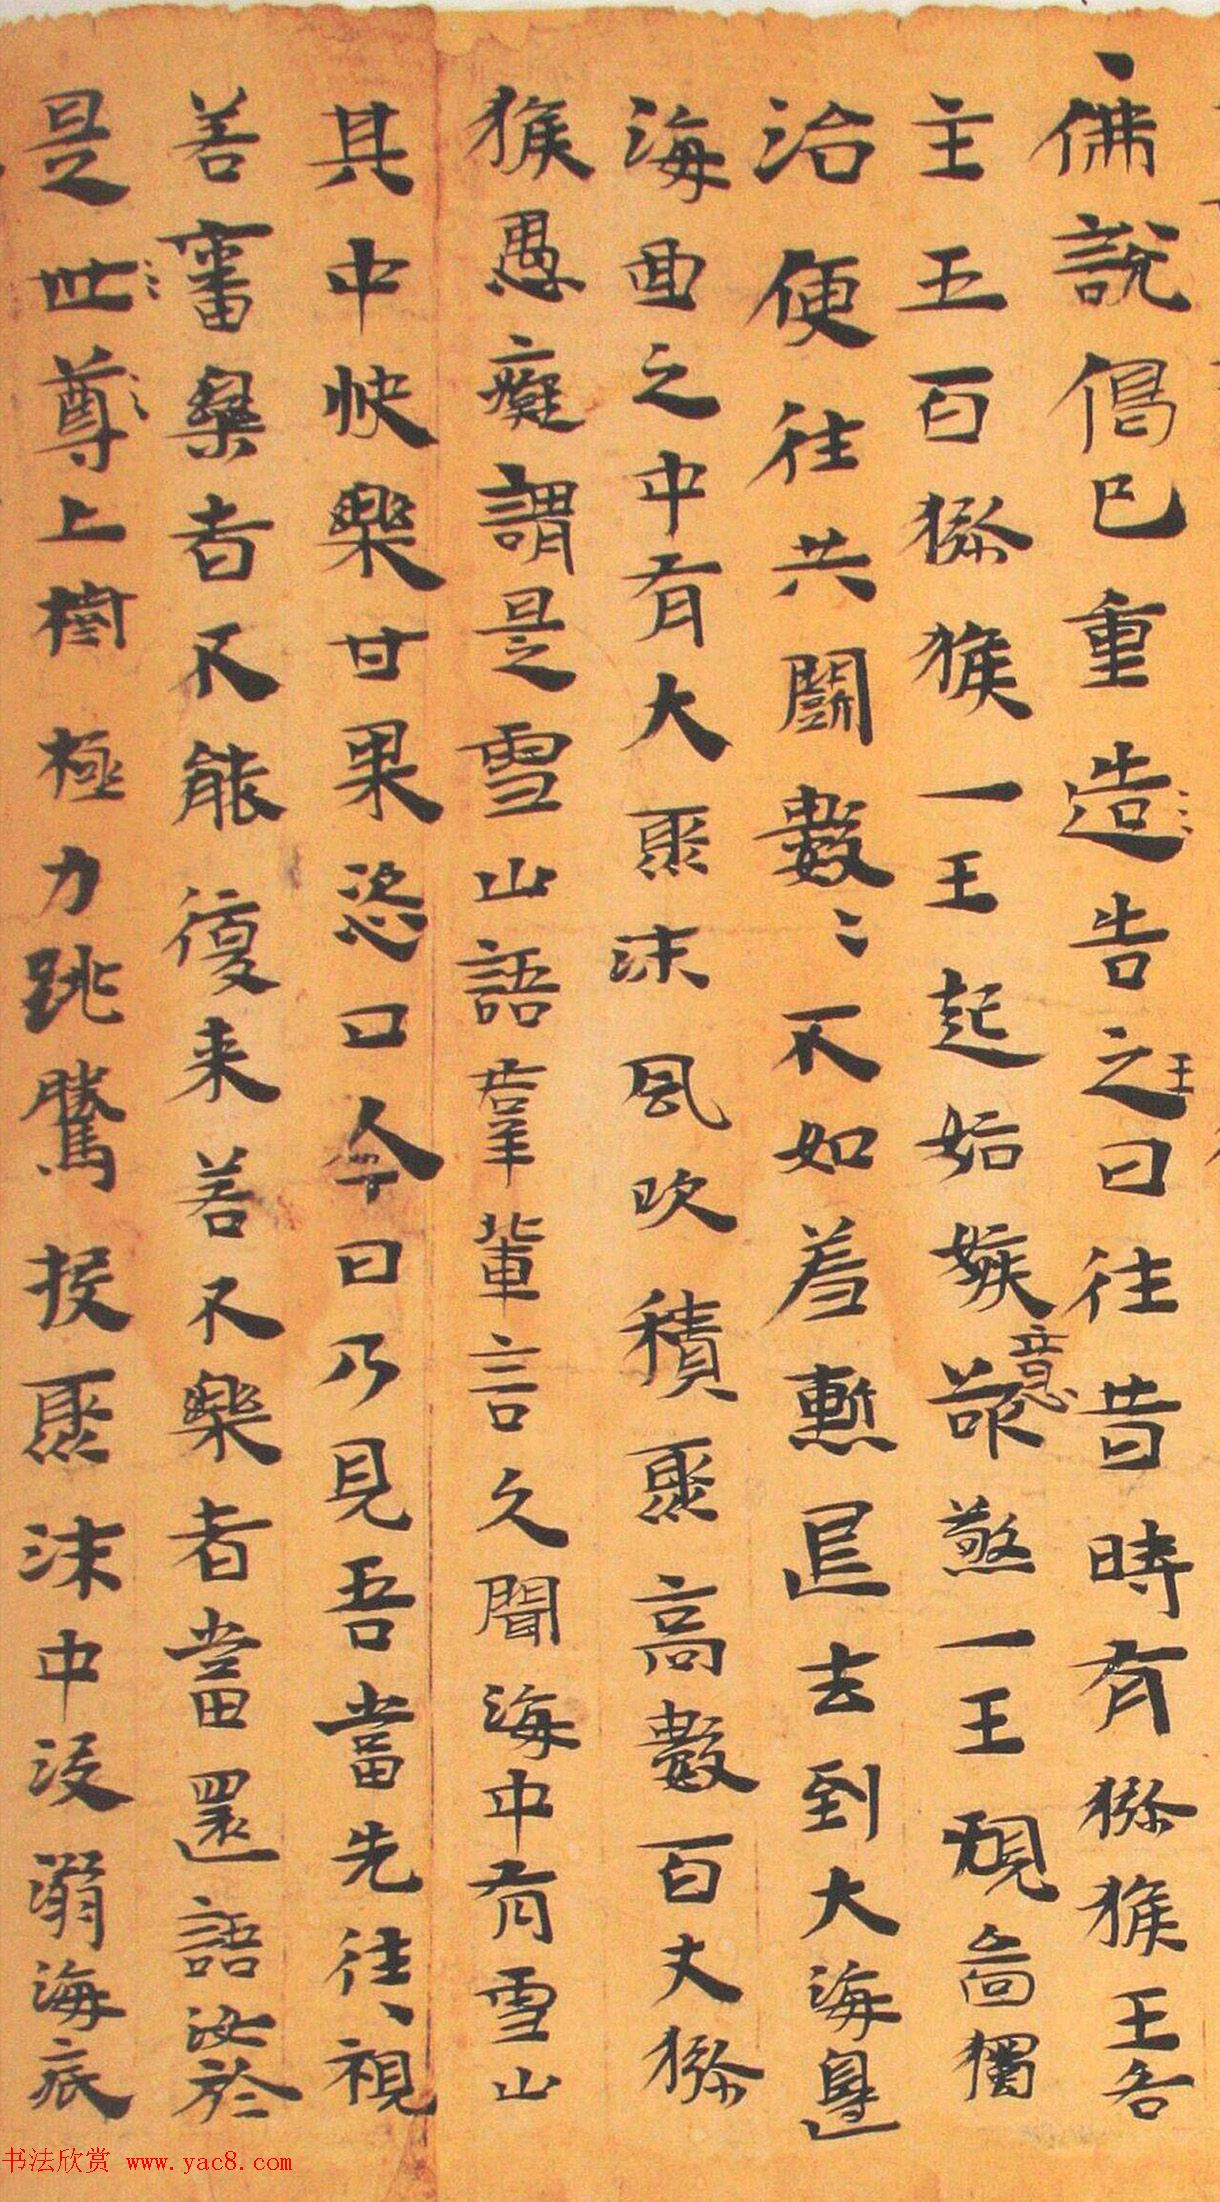 佛說偈已重造告之王曰往昔時有猕猴王各
主五百猕猴一王起姤嫉意煞一王規啚獨
治便往共鬪數〻不如羞慙退去到大海邊
海曲之中有大聚沫風吹積聚高數百丈猕
猴愚癡謂是雪山語羣輩言久聞海中有雪山
其中快樂甘果恣口今日乃見吾當先往視
若審樂者不能復来若不樂者當還語汝於
是世尊上樹極力跳騰投聚沫中没溺海底
书法欣赏 www.yac8.com